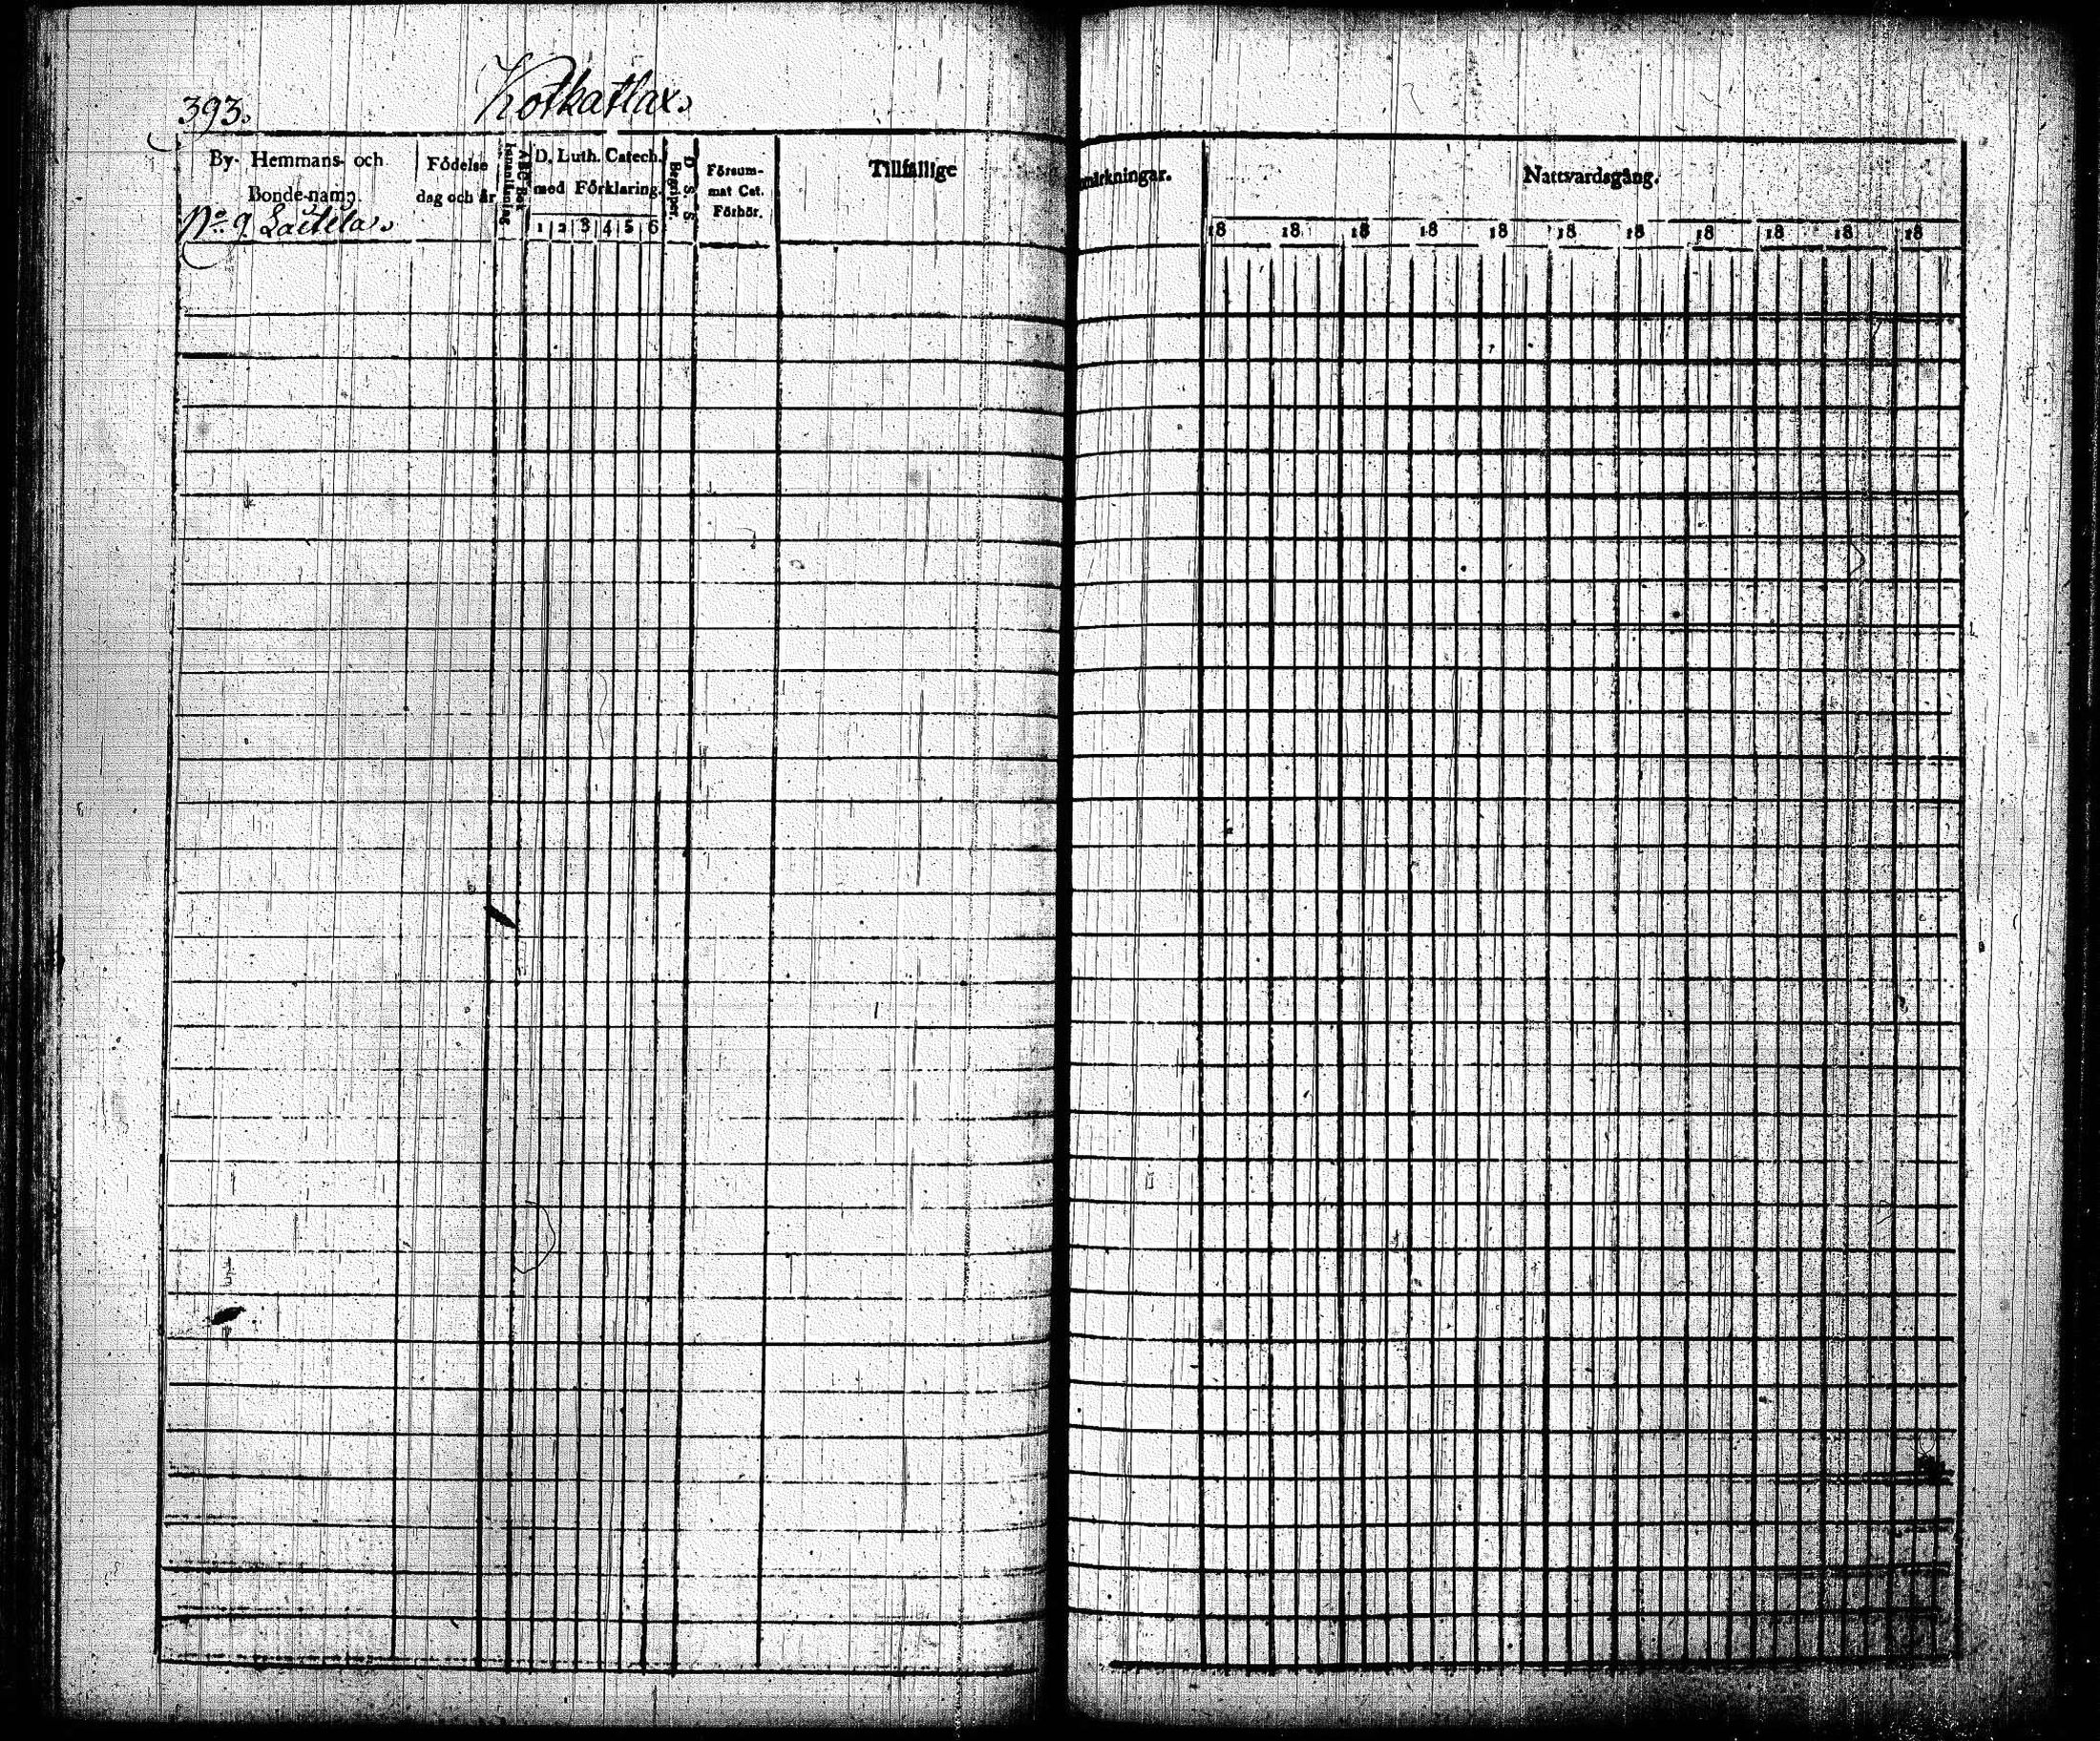 393.
Kotkatlax.
By- Hemmans- och
Bonde-namn.
No 9 Laitila.
Födelse
dag och år
Innanläsning
ABC Bok
D. Luth. Catech.
med Förklaring.
1 2 3 4 5 6
D. S. S.
Begriper.
Försum-
mat Cat.
Förhör.
Tillfällige
märkningar.
Nattvardsgång.
18 18 18 18 18 18 18 18 18 18 18